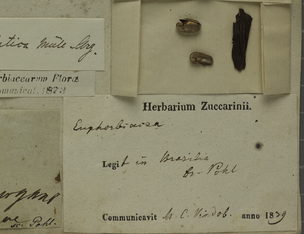 Müll. Arg.
biacearum Flora
communicat. 187
Herbarium Zuccarinii.
Euphorbiacea
Legit in Brasilia
Dr. Pohl
Communicavit M. C. Vindob. anno 1839
Pohl.